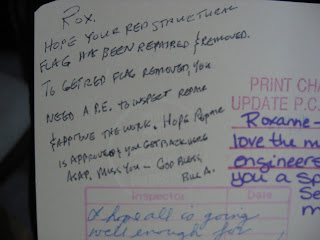 Rox.
HOPE YOUR RED STRUCTURAL
FLAG HAS BEEN REPAIRED & REMOVED.
TO GET RED FLAG REMOVED, YOU
NEED A P.E. TO INSPECT REPAIR
& APPROVE THE WORK. HOPE REPAIR
IS APPROVED & YOU GET BACK HERE
ASAP. MISS YOU — GOD BLESS,
BILL A.
PRINT CHA
UPDATE P.C.
Roxanne-
love the m
engineers
you a sp
Se
m
Inspector
Date
hope all is going
well enough for